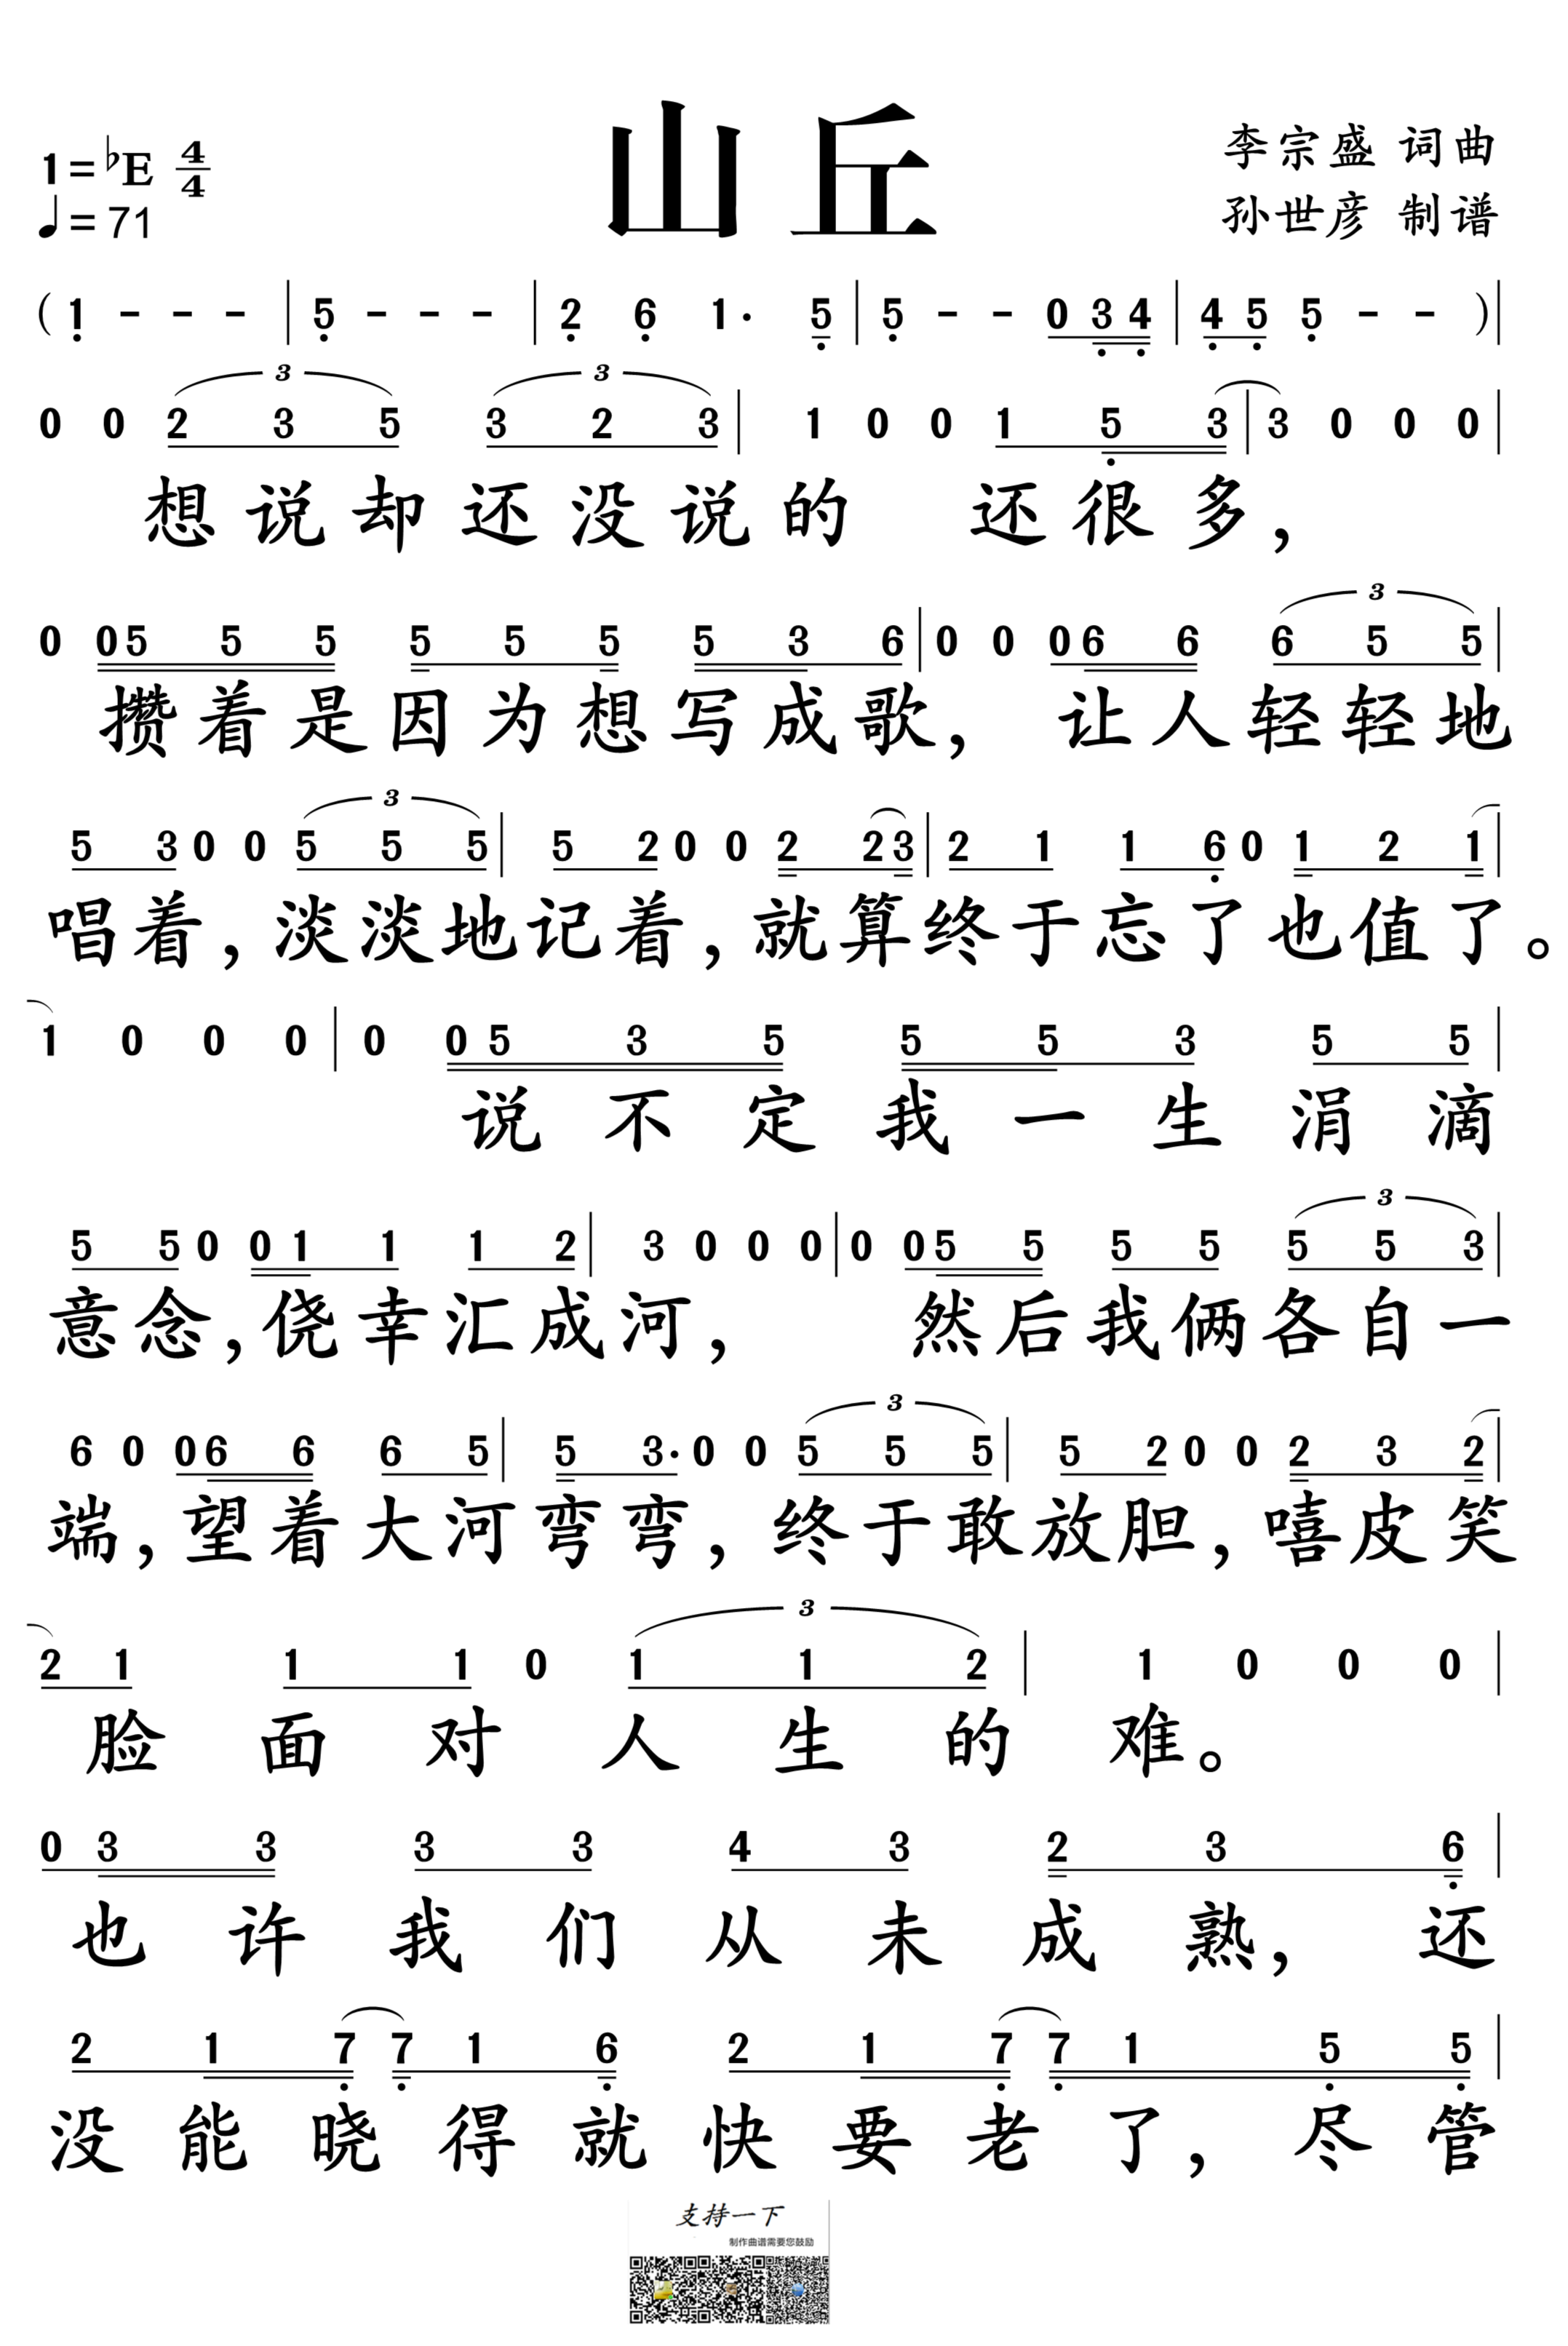 山丘
1=♭E 4/4
♩=71
李宗盛 词曲
孙世彦 制谱
( 1 - - - | 5 - - - | 2 6 1· 5 | 5 - - 0 3 4 | 4 5 5 - - ) |
3 3
0 0 2 3 5 3 2 3 | 1 0 0 1 5 3 | 3 0 0 0 |
想说却还没说的 还很多，
3
0 0 5 5 5 5 5 5 5 3 6 | 0 0 0 6 6 6 5 5 |
攒着是因为想写成歌， 让人轻轻地
3
5 3 0 0 5 5 5 | 5 2 0 0 2 2 3 | 2 1 1 6 0 1 2 1 |
唱着，淡淡地记着，就算终于忘了也值了。
1 0 0 0 | 0 0 5 3 5 5 5 3 5 5 |
说不定我一生涓滴
3
5 5 0 0 1 1 1 2 | 3 0 0 0 | 0 0 5 5 5 5 5 5 3 |
意念，侥幸汇成河， 然后我俩各自一
3
6 0 0 6 6 6 5 | 5 3· 0 0 5 5 5 | 5 2 0 0 2 3 2 |
端，望着大河弯弯，终于敢放胆，嘻皮笑
3
2 1 1 1 0 1 1 2 | 1 0 0 0 |
脸面对人生的难。
0 3 3 3 3 4 3 2 3 6 |
也许我们从未成熟，还
2 1 7 7 1 6 2 1 7 7 1 5 5 |
没能晓得就快要老了，尽管
支持一下
制作曲谱需要您鼓励